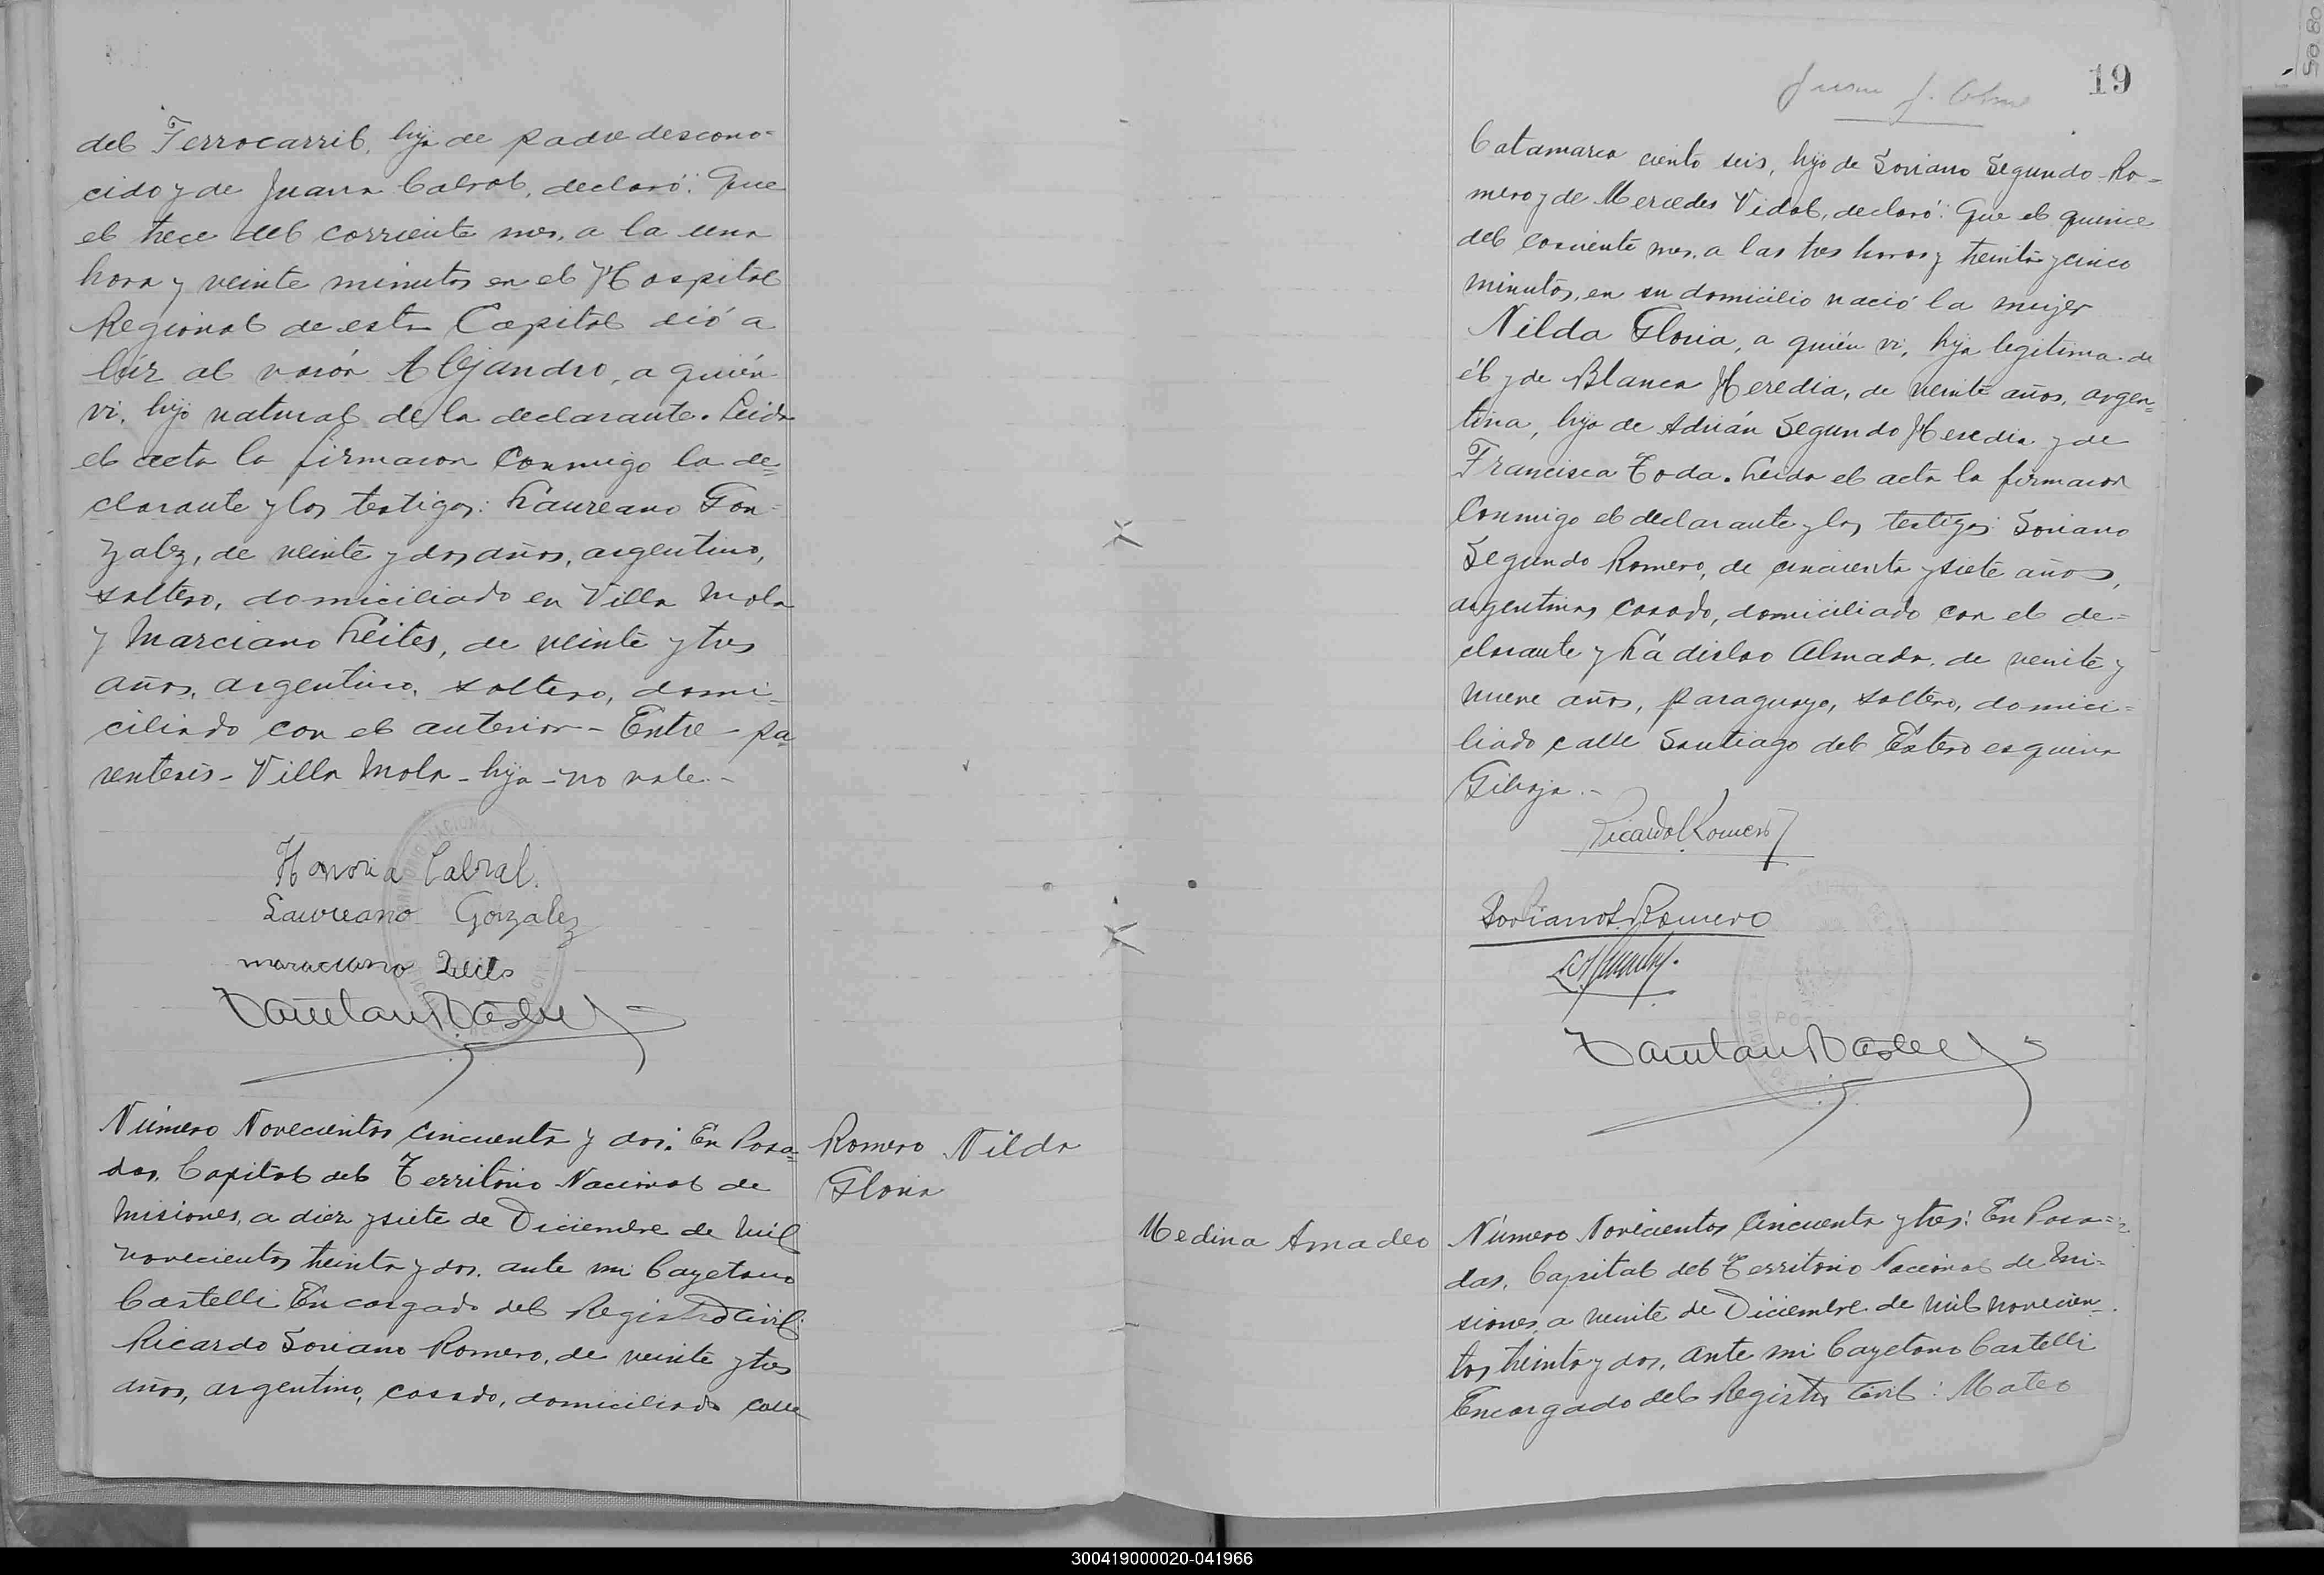 del Ferrocarril, hija de padre descono-
cido y de Juana Cabral, declaró: Que
el trece del corriente mes, a la una
hora y veinte minutos en el Hospital
Regional de esta Capital dió a
lúz al varón Alejandro, a quién
vi, hijo natural de la declarante. Leida
el acta la firmaron conmigo la de=
clarante y los testigos: Laureano Gon=
zalez, de veinte y dos años, argentino,
soltero, domiciliado en Villa Mola
y Marciano Leites, de veinte y tres
años, argentino, soltero, domi=
ciliado con el anterior - Entre - pa
rentesis - Villa Mola - hija - no vale. -
Honoria Cabral.
Laureano Gonzalez
Número Novecientos cincuenta y dos: En Posa=
das, Capital del Territorio Nacional de
Misiones, a diez y siete de Diciembre de mil
novecientos treinta y dos, ante mi Cayetano
Castelli Encargado del Registro Civil:
Ricardo Soriano Romero, de veinte y tres
años, argentino, casado, domiciliado calle
Romero Nilda
Gloria
19
Juan J.
Catamarca ciento seis, hijo de Soriano Segundo Ro=
mero y de Mercedes Vidal, declaró: Que el quince
del corriente mes, a las tres horas y treinta y cinco
minutos, en su domicilio nació la mujer
Nilda Gloria, a quién vi, hija legitima de
él y de Blanca Heredia, de veinte años, argen=
tina, hija de Adrián Segundo Heredia y de
Francisca Toda. Leida el acta la firmaron
conmigo el declarante y los testigos: Soriano
Segundo Romero, de cincuenta y siete años,
argentino, casado, domiciliado con el de=
clarante y Ladislao Almada, de veinte y
nueve años, paraguayo, soltero, domici=
liado calle Santiago del Estero esquina
Gibaja. -
Ricardo S Romero
Soriano S. Romero
Medina Amadeo
Número Novecientos Cincuenta y tres: En Posa=
das, Capital del Territorio Nacional de Mi-
siones, a veinte de Diciembre de mil novecien-
tos treinta y dos, ante mi Cayetano Castelli
Encargado del Registro Civil: Mateo
300419000020-041966